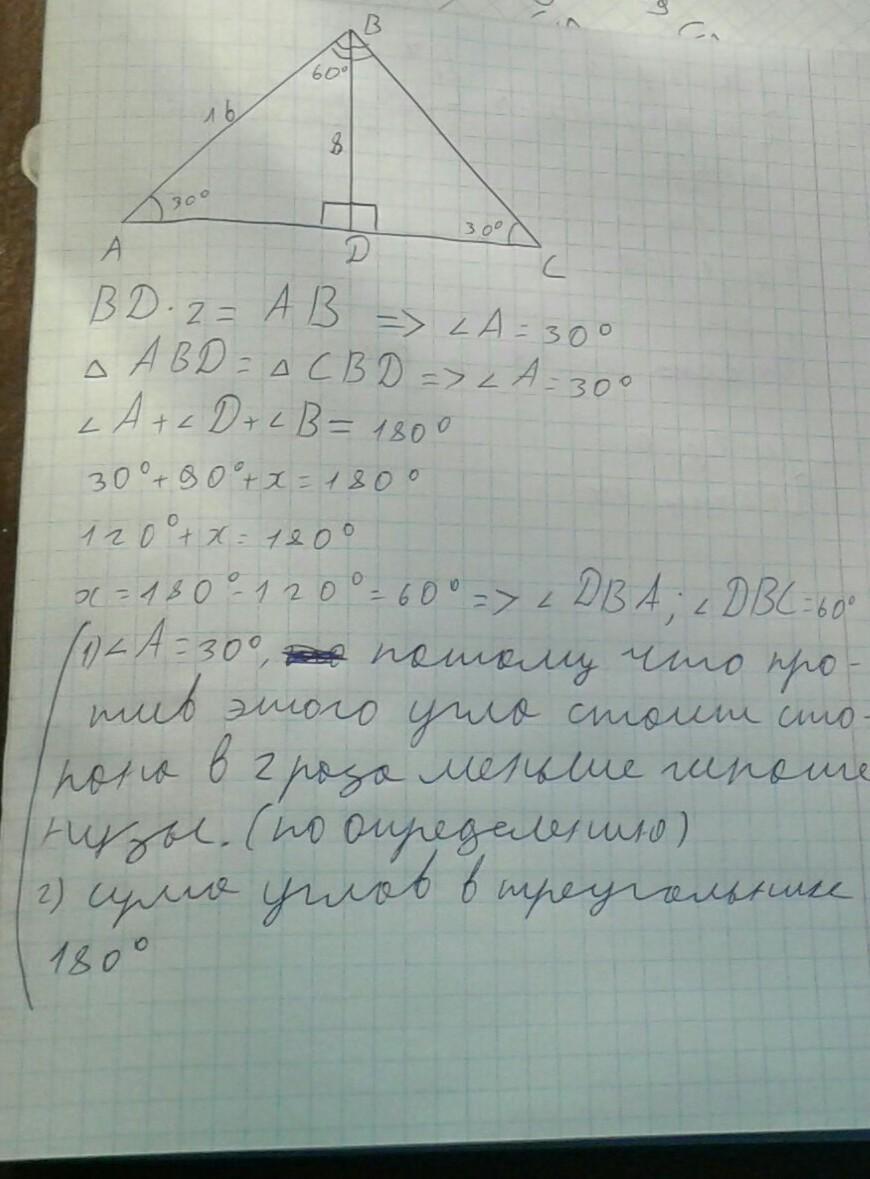 B
60°
16
8
30°
30°
A
D
C
BD · 2 = AB => ∠A = 30°
△ ABD = △ CBD => ∠A = 30°
∠A + ∠D + ∠B = 180°
30° + 90° + x = 180°
120° + x = 180°
x = 180° - 120° = 60° => ∠DBA; ∠DBC = 60°
1) ∠A = 30°, потому что про-
тив этого угла стоит сто-
рона в 2 раза меньше гипоте
нузы. (по определению)
2) сума углов в треугольнике
180°